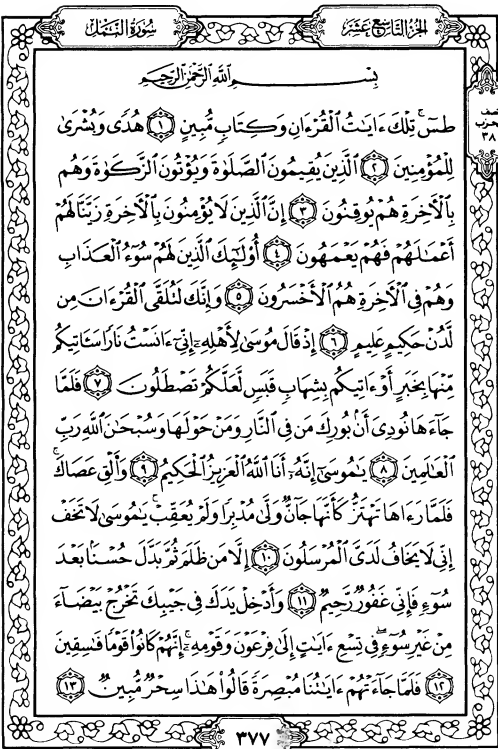 سُورَةُ النَّمْلِ
الجُزْءُ التَّاسِعَ عَشَرَ
بِسْمِ اللَّهِ الرَّحْمَٰنِ الرَّحِيمِ
نصف
الحزب
٣٨
طسٓ ۚ تِلْكَ ءَايَٰتُ الْقُرْءَانِ وَكِتَابٍ مُّبِينٍ ١ هُدًى وَبُشْرَىٰ
لِلْمُؤْمِنِينَ ٢ الَّذِينَ يُقِيمُونَ الصَّلَوٰةَ وَيُؤْتُونَ الزَّكَوٰةَ وَهُم
بِالْأَخِرَةِ هُمْ يُوقِنُونَ ٣ إِنَّ الَّذِينَ لَا يُؤْمِنُونَ بِالْأَخِرَةِ زَيَّنَّا لَهُمْ
أَعْمَٰلَهُمْ فَهُمْ يَعْمَهُونَ ٤ أُوْلَٰٓئِكَ الَّذِينَ لَهُمْ سُوٓءُ الْعَذَابِ
وَهُمْ فِي الْأَخِرَةِ هُمُ الْأَخْسَرُونَ ٥ وَإِنَّكَ لَتُلَقَّى الْقُرْءَانَ مِن
لَّدُنْ حَكِيمٍ عَلِيمٍ ٦ إِذْ قَالَ مُوسَىٰ لِأَهْلِهِۦٓ إِنِّيٓ ءَانَسْتُ نَارًا سَـَٔاتِيكُم
مِّنْهَا بِخَبَرٍ أَوْ ءَاتِيكُم بِشِهَابٍ قَبَسٍ لَّعَلَّكُمْ تَصْطَلُونَ ٧ فَلَمَّا
جَآءَهَا نُودِيَ أَنۢ بُورِكَ مَن فِي النَّارِ وَمَنْ حَوْلَهَا وَسُبْحَٰنَ اللَّهِ رَبِّ
الْعَٰلَمِينَ ٨ يَٰمُوسَىٰٓ إِنَّهُۥٓ أَنَا اللَّهُ الْعَزِيزُ الْحَكِيمُ ٩ وَأَلْقِ عَصَاكَ ۚ
فَلَمَّا رَءَاهَا تَهْتَزُّ كَأَنَّهَا جَآنٌّ وَلَّىٰ مُدْبِرًا وَلَمْ يُعَقِّبْ ۚ يَٰمُوسَىٰ لَا تَخَفْ
إِنِّي لَا يَخَافُ لَدَيَّ الْمُرْسَلُونَ ١٠ إِلَّا مَن ظَلَمَ ثُمَّ بَدَّلَ حُسْنًۢا بَعْدَ
سُوٓءٍ فَإِنِّي غَفُورٌ رَّحِيمٌ ١١ وَأَدْخِلْ يَدَكَ فِي جَيْبِكَ تَخْرُجْ بَيْضَآءَ
مِنْ غَيْرِ سُوٓءٍ ۖ فِي تِسْعِ ءَايَٰتٍ إِلَىٰ فِرْعَوْنَ وَقَوْمِهِۦٓ ۚ إِنَّهُمْ كَانُوا۟ قَوْمًا فَٰسِقِينَ
١٢ فَلَمَّا جَآءَتْهُمْ ءَايَٰتُنَا مُبْصِرَةً قَالُوا۟ هَٰذَا سِحْرٌ مُّبِينٌ ١٣
٣٧٧